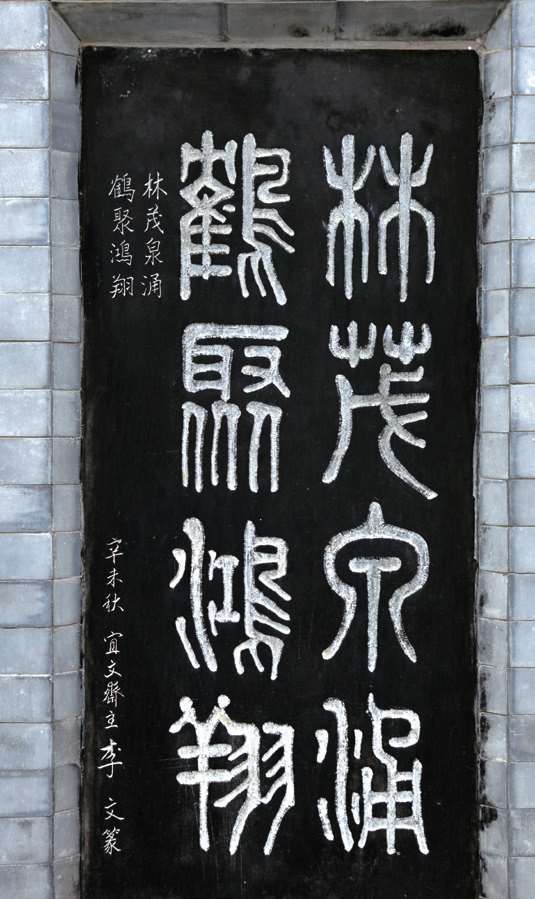 林茂泉涌
鶴聚鴻翔
林茂泉涌
鶴聚鴻翔
辛未秋 宜文齋主李文篆